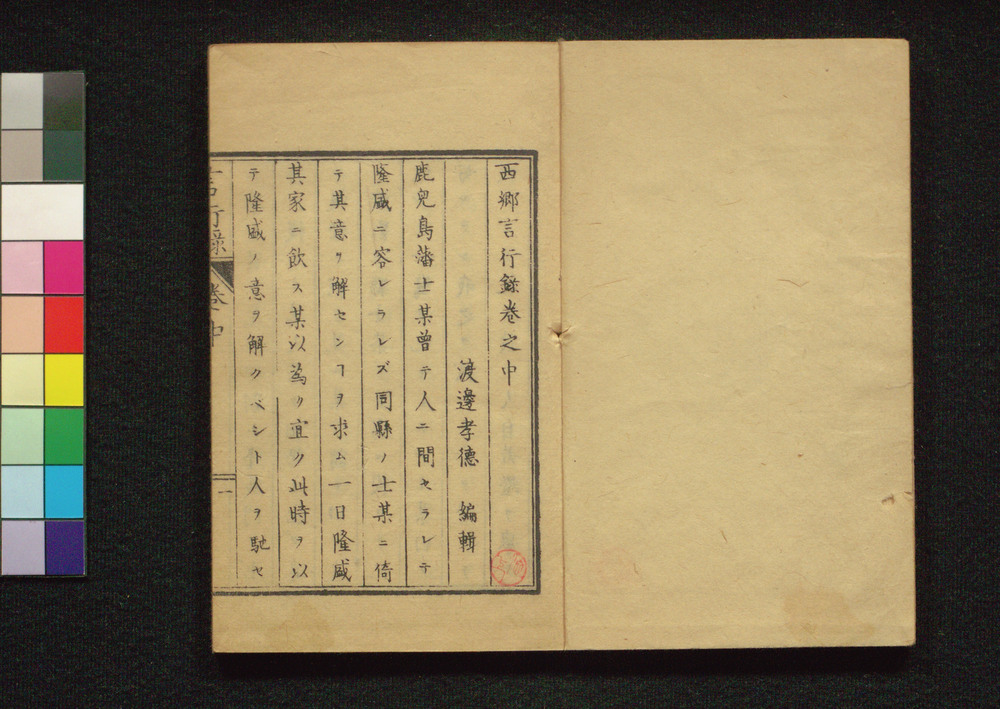 西郷言行錄卷之中
渡邊孝德 編輯
鹿兒島藩士某曾テ人ニ間セラレテ
隆盛ニ容レラレズ同縣ノ士某ニ倚
テ其意ヲ解センヿヲ求ム一日隆盛
其家ニ飲ス某以爲ク宜ク此時ヲ以
テ隆盛ノ意ヲ解クベシト人ヲ馳セ
言行錄 卷中 一